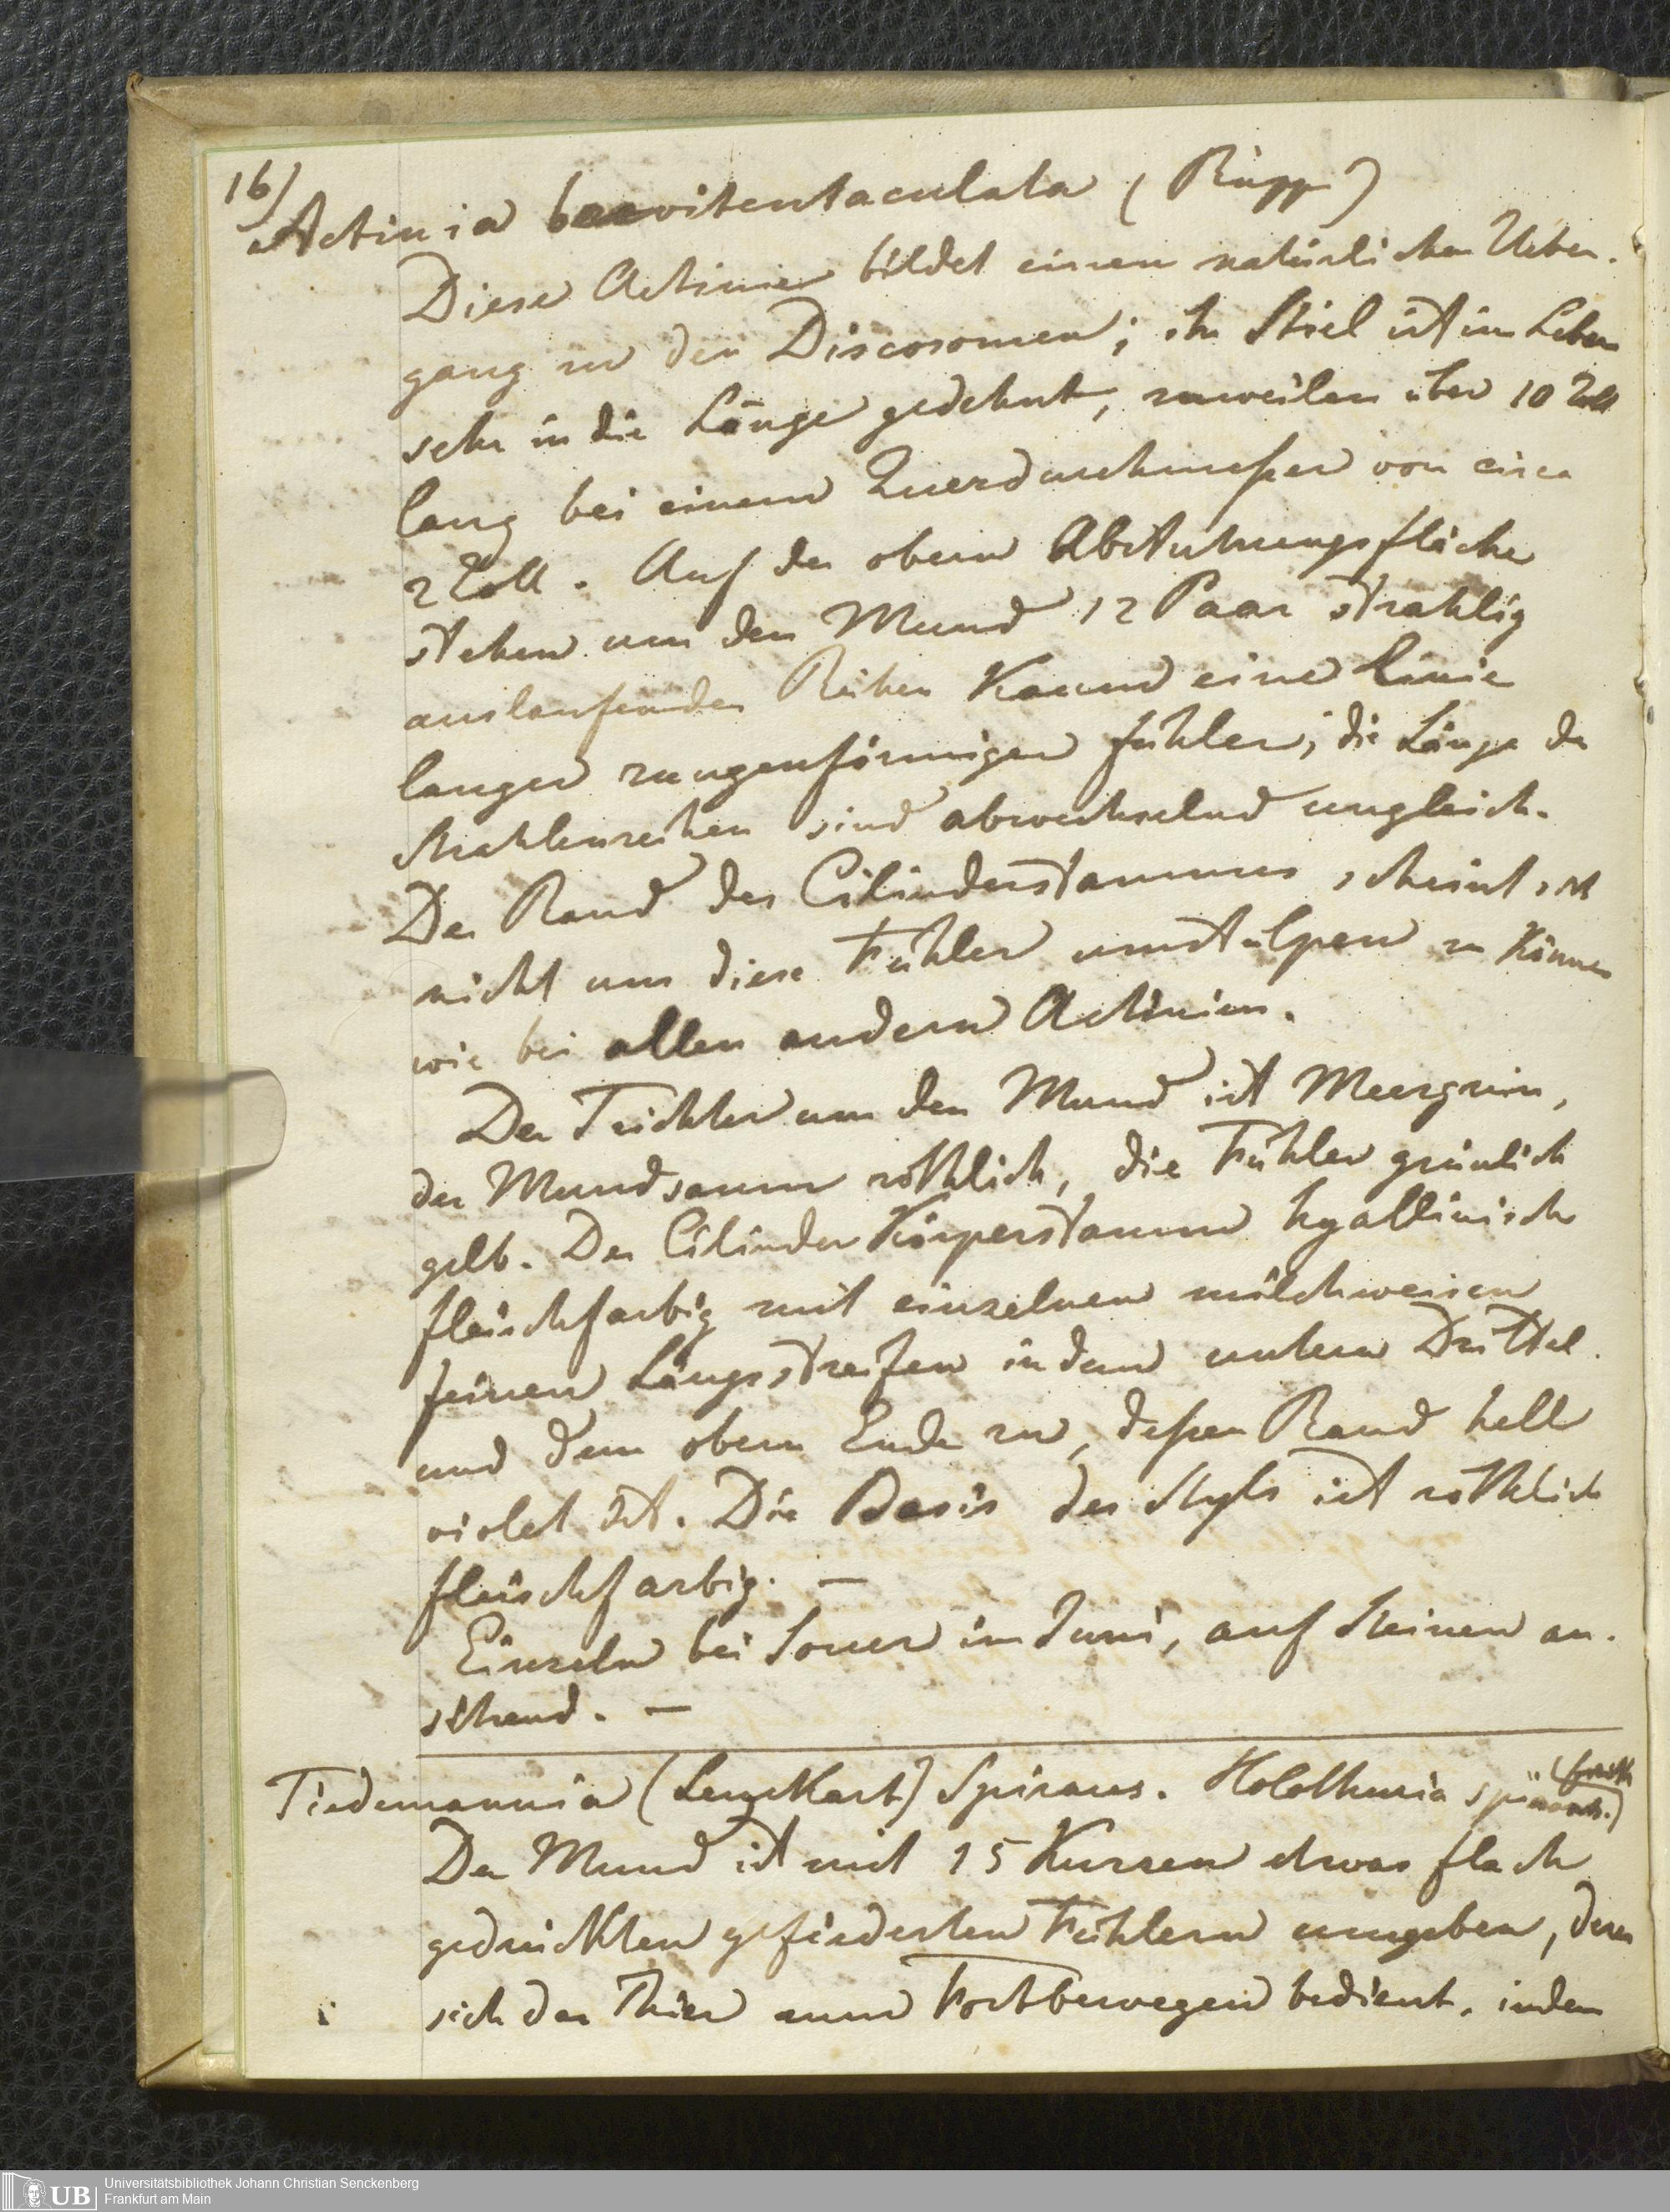 16)
Actinia brevitentaculata (Rüpp)
Diese Actinie bildet einen natürlichen Ueber-
gang zu den Discosomen; ihr Stiel ist im Leben
sehr in die Länge gedehnt, zuweilen über 10 Zoll
lang bei einem Querdurchmeßer von circa
2 Zoll. Auf der obern Abstutzungsfläche
stehen um den Mund 12 Paar strahlig
auslaufenden Reihen Kaum eine Linie
langer zungenförmiger Fühler; die Länge der
Strahlenreihen sind abwechselnd ungleich.
Der Rand des Cilinderstammes scheint sich
nicht um diese Fühler umstülpen zu Können
wie bei allen andern Actinien.
Der Trichter um den Mund ist Meergrün,
der Mundsaum rothlich, die Fühler grünlich
gelb. Der Cilinder Körperstamm hyallinisch
fleischfarbig mit einzelnen milchweisen
feinen Längsstreifen in dem untern Drittel
und dem obern Ende zu, deßen Rand hell
violet ist. Die Basis des Styls ist rothlich
fleischfarbig. —
Einzeln bei Torier im Juni, auf Steinen an-
sitzend. —
Tiedemannia (Leuckart) Spirans. Holothuria
Der Mund ist mit 15 Kurzen etwas flach
gedrückten gefiederten Fühlern umgeben, deren
sich das Thier zum Fortbewegen bedient, indem
Universitätsbibliothek Johann Christian Senckenberg
UB Frankfurt am Main